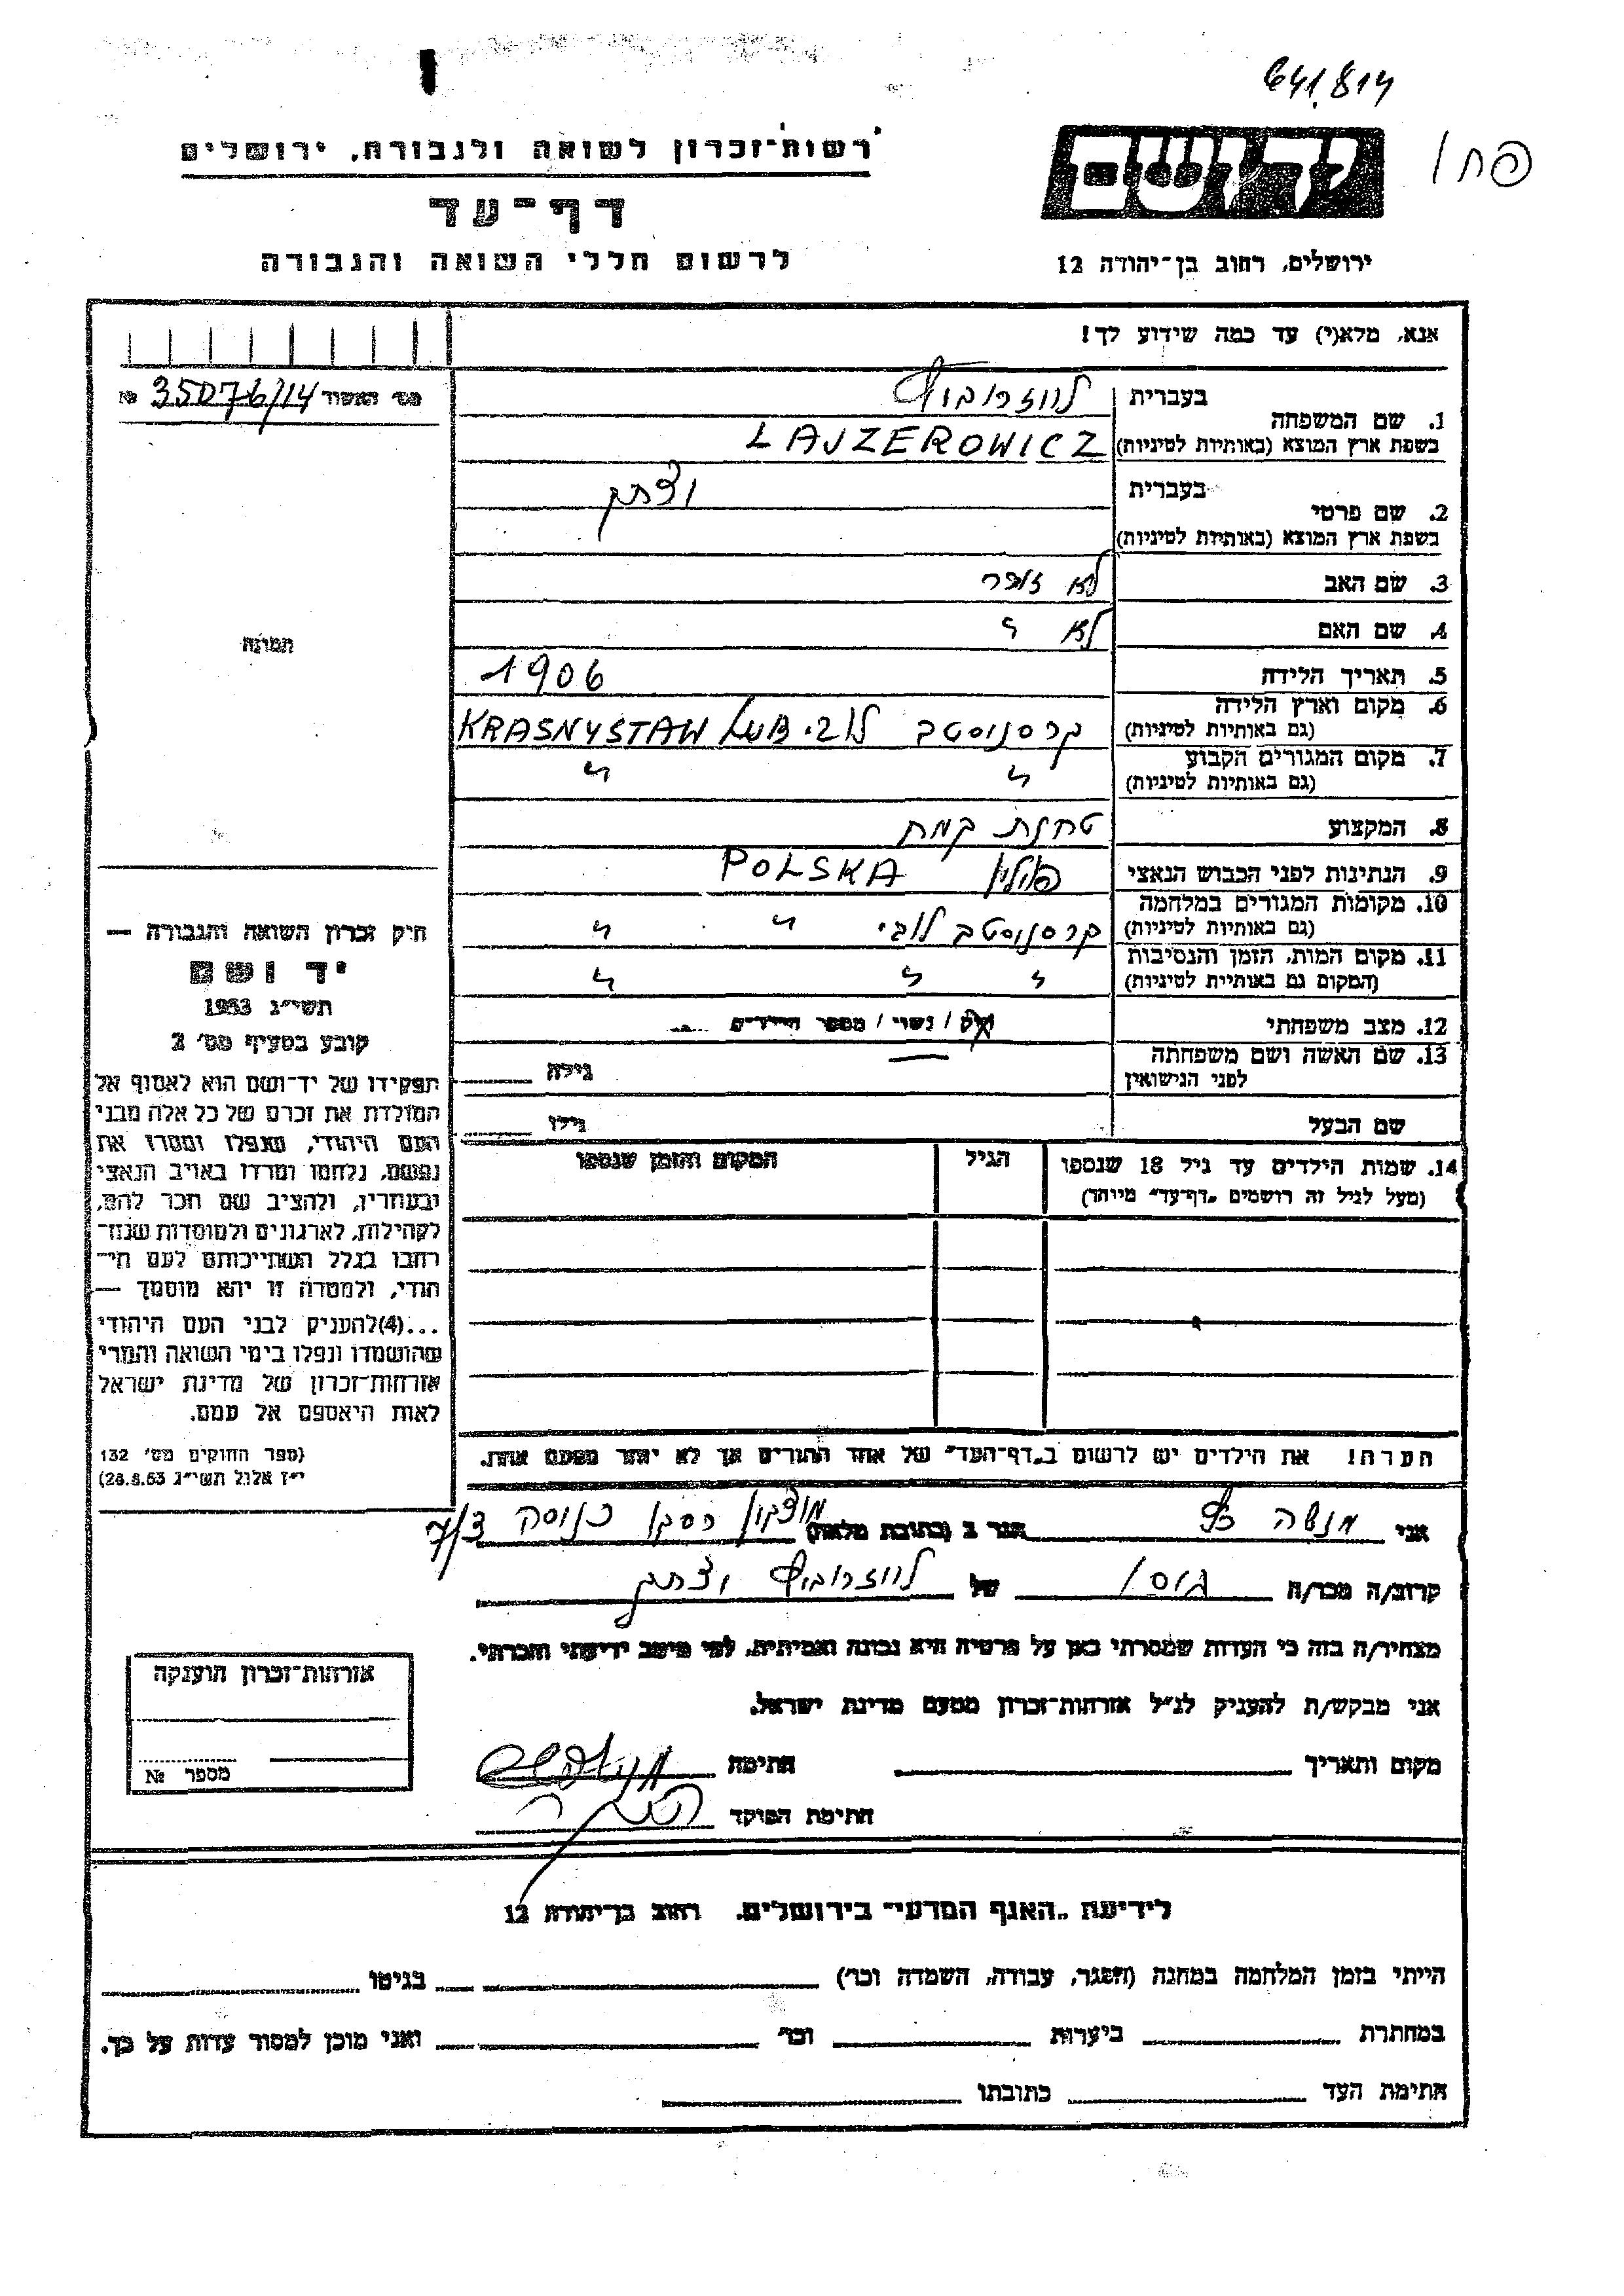 641.814
רשות־זכרון לשואה ולגבורה, ירושלים
דף־עד
לרשום חללי השואה והגבורה
ירושלים, רחוב בן־יהודה 12
אנא, מלא(י) עד כמה שידוע לך!
מס׳ האשור 35076/14 №
1. שם המשפחה
בעברית
לייזרוביץ
בשפת ארץ המוצא (באותיות לטיניות) LAJZEROWICZ
2. שם פרטי
בעברית
יצחק
בשפת ארץ המוצא (באותיות לטיניות)
3. שם האב לא זוכר
4. שם האם לא ״
5. תאריך הלידה 1906
6. מקום וארץ הלידה
(גם באותיות לטיניות) קרסניסטב לובי KRASNYSTAW LUBEL
7. מקום המגורים הקבוע
(גם באותיות לטיניות) ״ ״
8. המקצוע טחנת קמח
9. הנתינות לפני הכבוש הנאצי פולין POLSKA
10. מקומות המגורים במלחמה
(גם באותיות לטיניות) קרסניסטב לובי ״ ״
11. מקום המות, הזמן והנסיבות
(המקום גם באותיות לטיניות) ״ ״ ״
12. מצב משפחתי רווק / נשוי / מספר הילדים
13. שם האשה ושם משפחתה
לפני הנישואין
גילה
שם הבעל
גילו
14. שמות הילדים עד גיל 18 שנספו
(מעל לגיל זה רושמים „דף־עד״ מיוחד)
הגיל
המקום והזמן שנספו
הערה! את הילדים יש לרשום ב„דף־העד״ של אחד ההורים אך לא יותר מפעם אחת.
תמונה
חוק זכרון השואה והגבורה —
יד ושם
תשי״ג 1953
קובע בסעיף מס׳ 2
תפקידו של יד־ושם הוא לאסוף אל
המולדת את זכרם של כל אלה מבני
העם היהודי, שנפלו ומסרו את
נפשם, נלחמו ומרדו באויב הנאצי
ובעוזריו, ולהציב שם וזכר להם,
לקהילות, לארגונים ולמוסדות שנח־
רבו בגלל השתייכותם לעם הי־
הודי, ולמטרה זו יהא מוסמך —
...(4) להעניק לבני העם היהודי
שהושמדו ונפלו בימי השואה והמרי
אזרחות־זכרון של מדינת ישראל
לאות היאספם אל עמם.
(ספר החוקים מס׳ 132
י״ז אלול תשי״ג 28.8.53)
אני מנשה כץ הגר ב (כתובת מלאה)
קרוב/ה מכר/ה גיסו של לייזרוביץ יצחק
מצהיר/ה בזה כי העדות שמסרתי כאן על פרטיה היא נכונה ואמיתית, לפי מיטב ידיעתי והכרתי.
אני מבקש/ת להעניק לנ״ל אזרחות־זכרון מטעם מדינת ישראל.
מקום ותאריך
חתימה
חתימת הפוקד
אזרחות־זכרון הוענקה
מספר №
לידיעת „האגף המדעי״ בירושלים. רחוב בן־יהודה 12
הייתי בזמן המלחמה במחנה (הסגר, עבודה, השמדה וכו׳)
בגיטו
במחתרת ביערות וכו׳ ואני מוכן למסור עדות על כך.
חתימת העד כתובתו